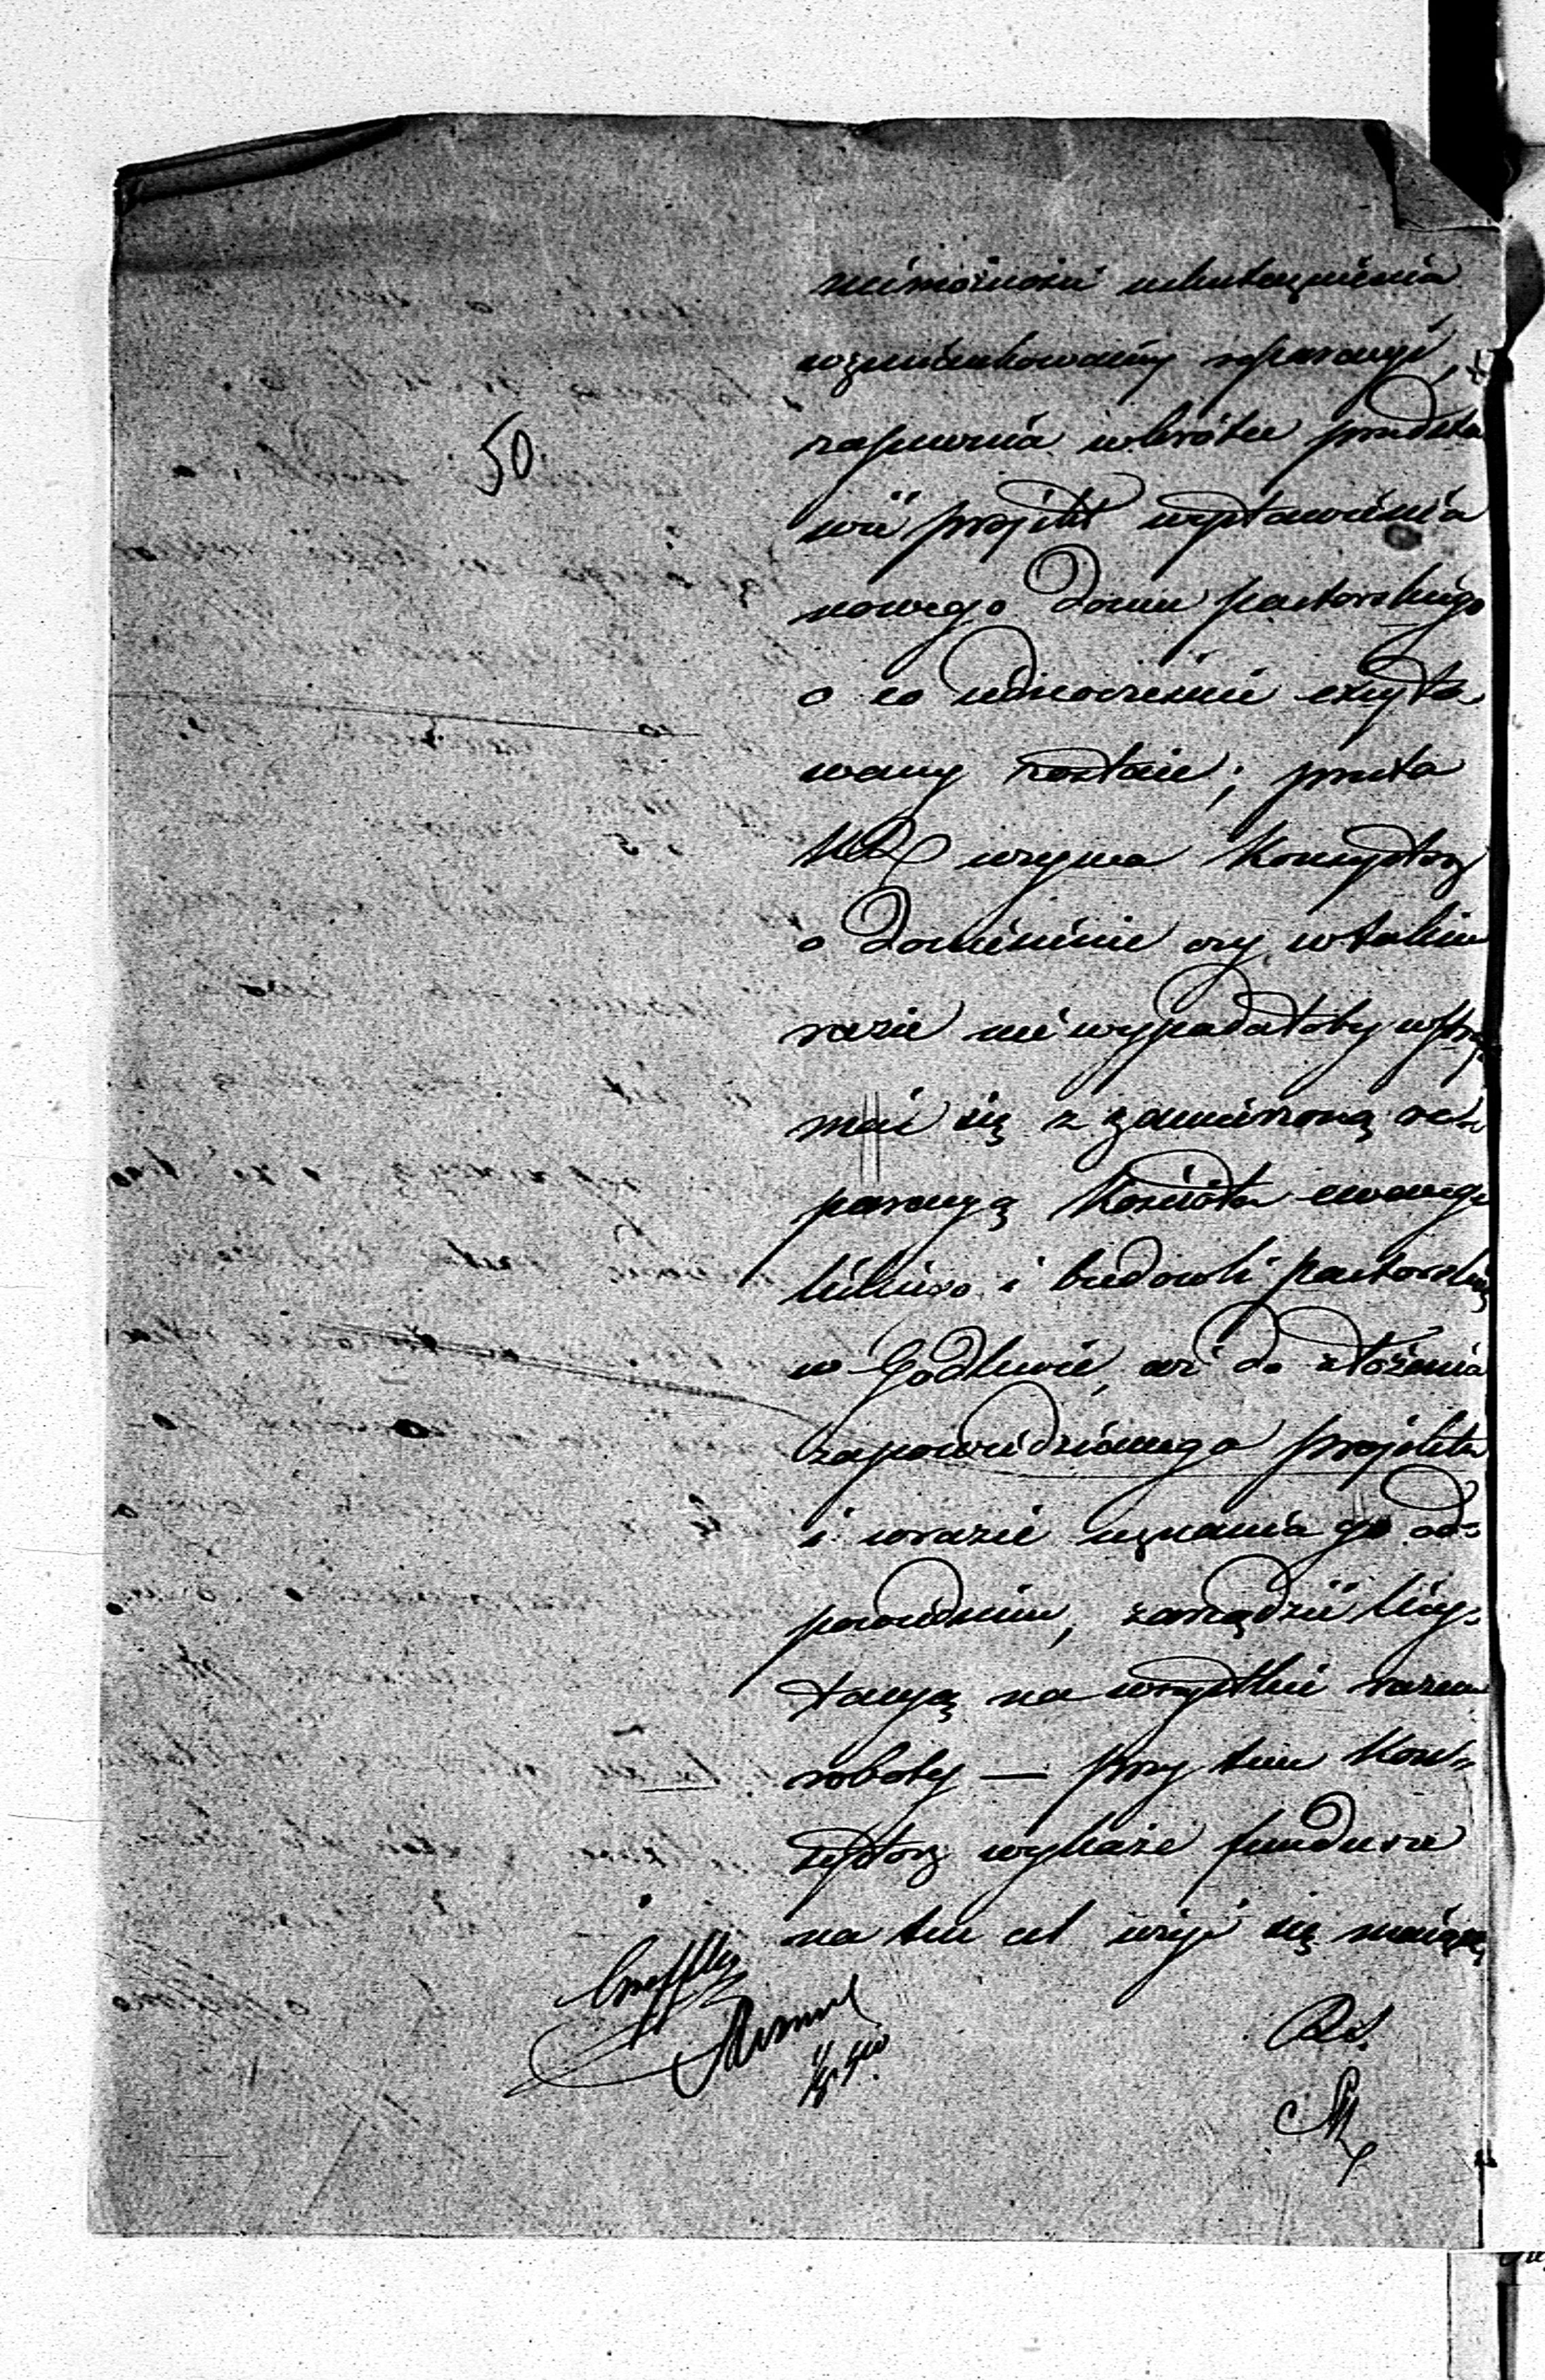 niemożności uskutecznienia
wzmiankowaney reparacyi,
zapewnia wkrótce przedsta
wić projekt wystawienia
nowego domu pastorskiego
o co iednocześnie excyta
wany zostaie; przeto
wzywa Konsystorz
o doniesienie czy w takim
razie nie wypadałoby wstrzy
mać się z zamierzoną re-
paracyą Kościoła ewange
lickiego i budowli pastorskiej
w Godlewie, aż do złożenia
zapowiedzianego projektu
i w razie uznania go od-
powiednim, zarządzić licy-
tacyą na wszystkie razem
roboty — przy tem Kon-
systorz wykaże fundusze
na ten cel użyć się maiące
50.